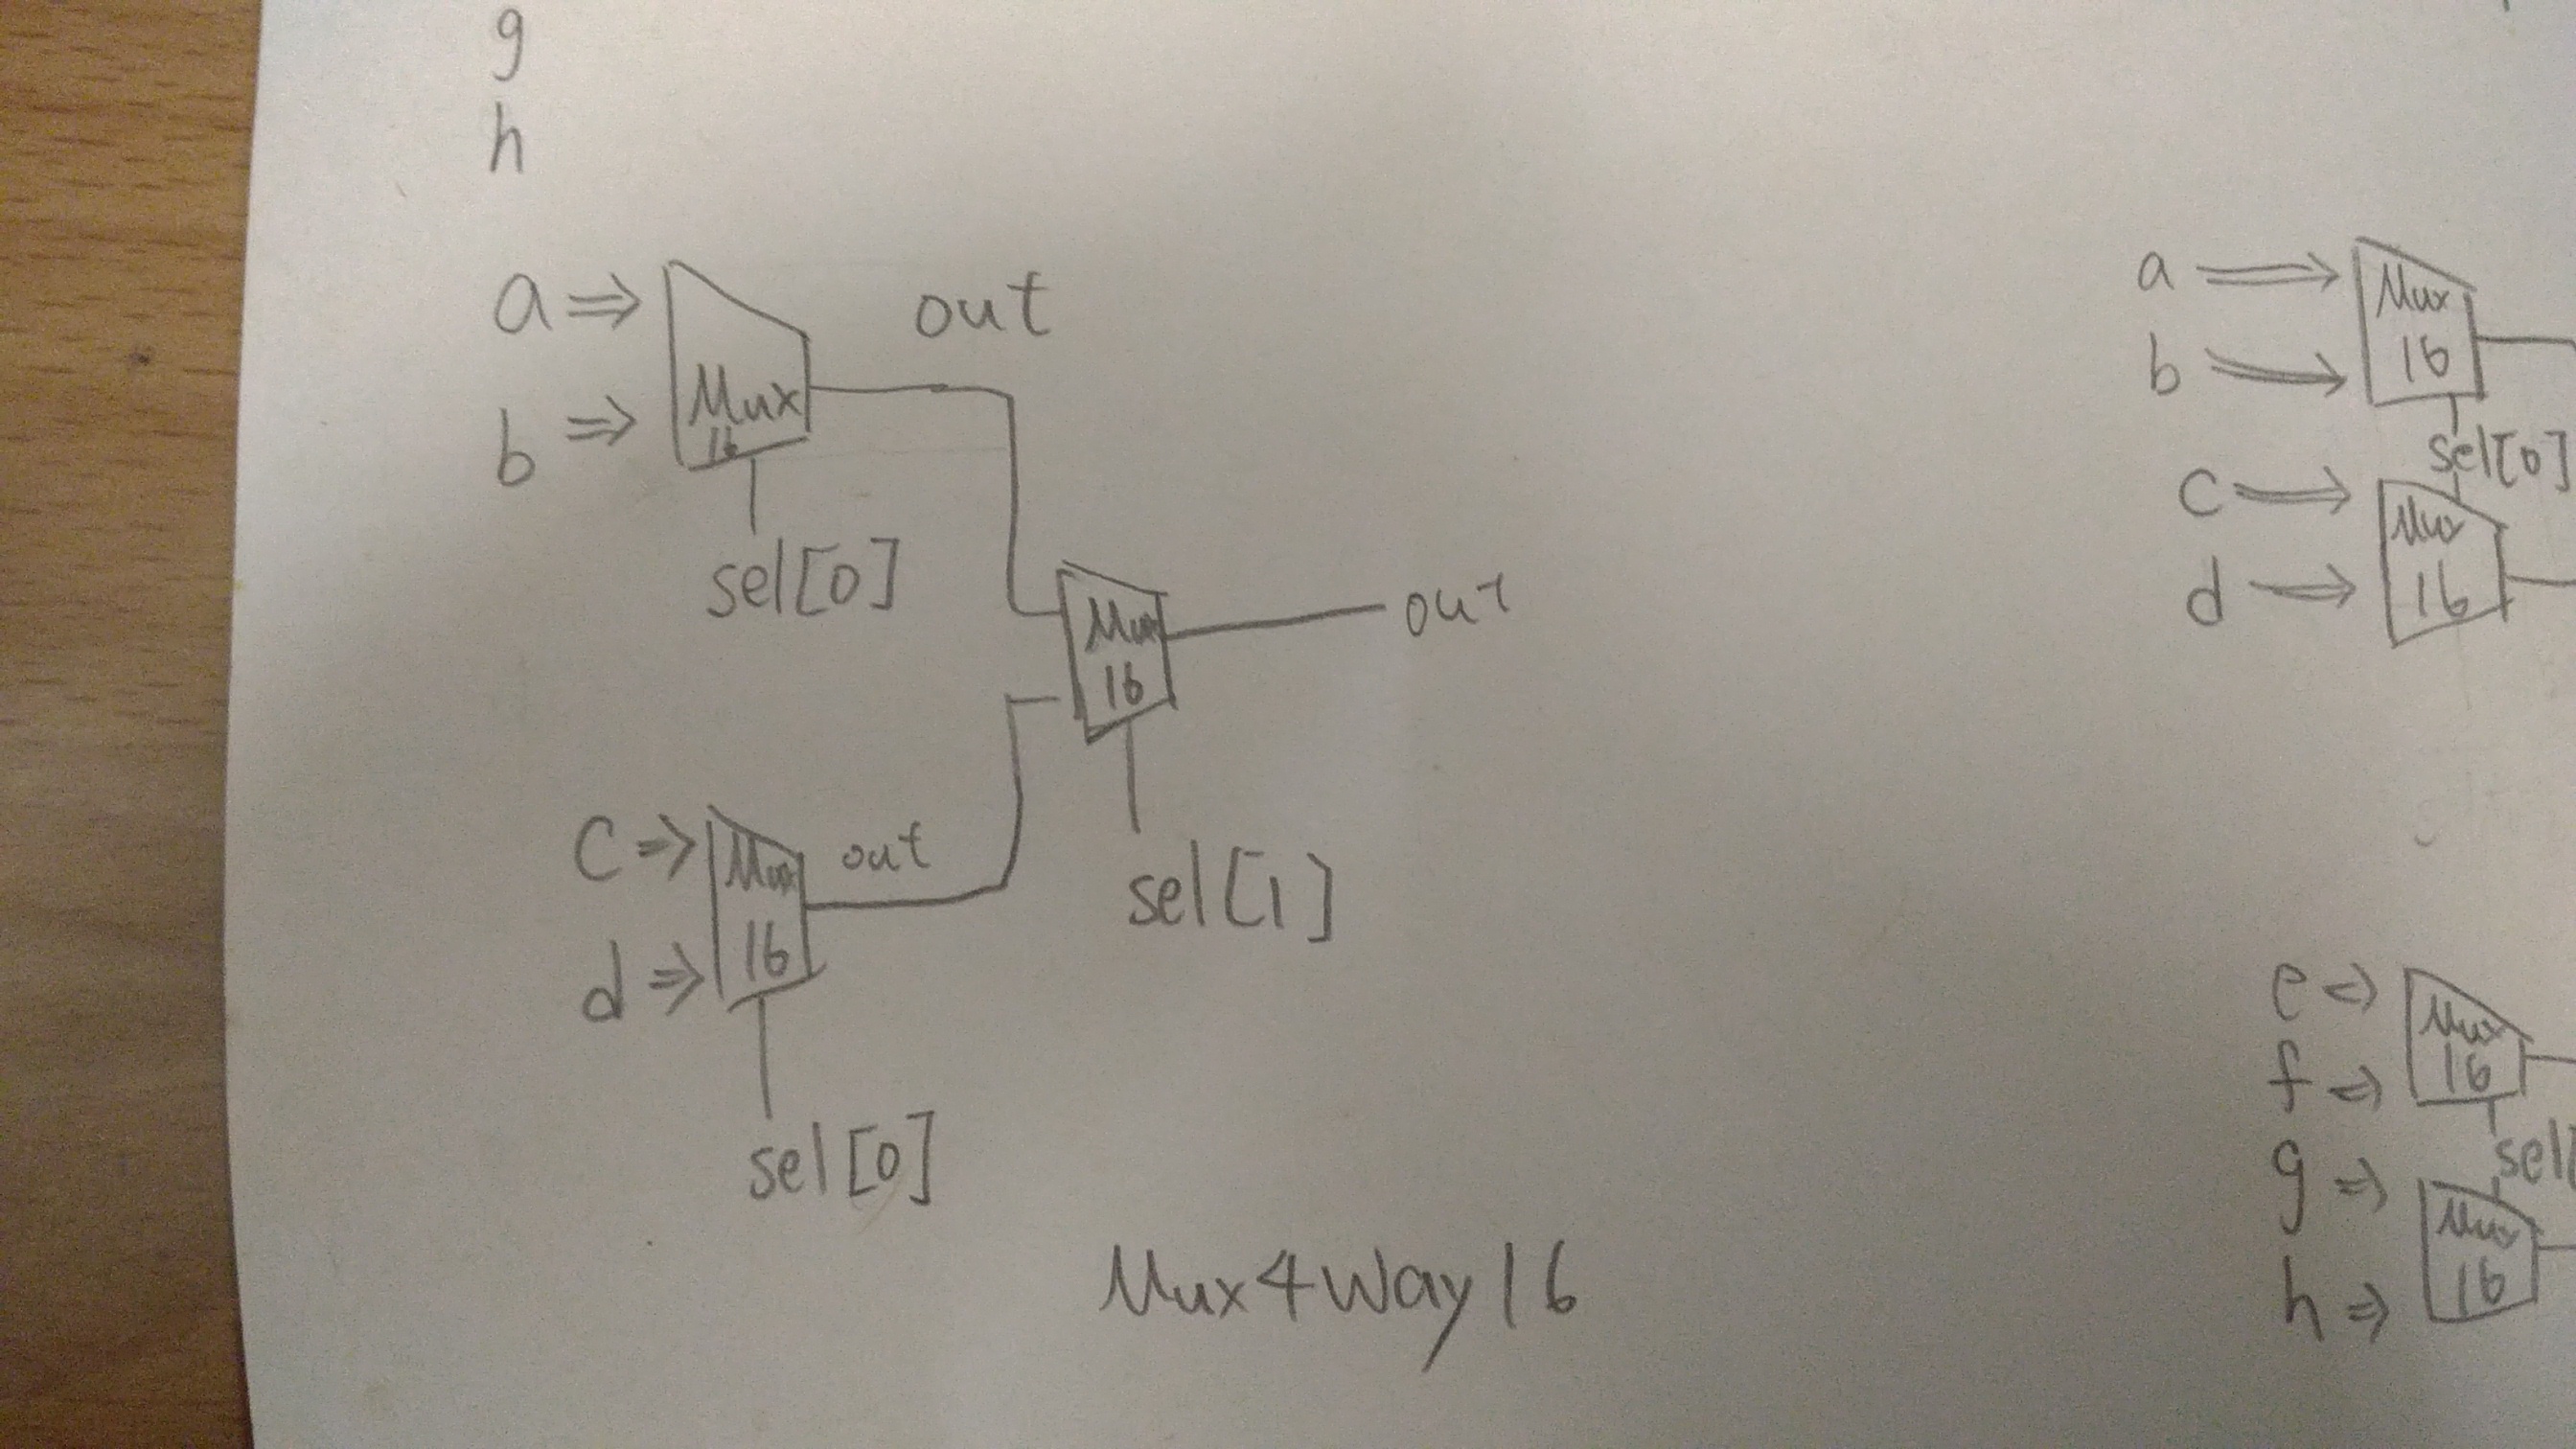 g
h
a ⇒ Mux 16 out
b ⇒
sel[0]
Mux 16 out
sel[1]
c ⇒ Mux 16 out
d ⇒
sel[0]
Mux4Way16
a ⇒ Mux 16
b ⇒
sel[0]
c ⇒ Mux 16
d ⇒
e ⇒ Mux 16
f ⇒
sel[
g ⇒ Mux 16
h ⇒